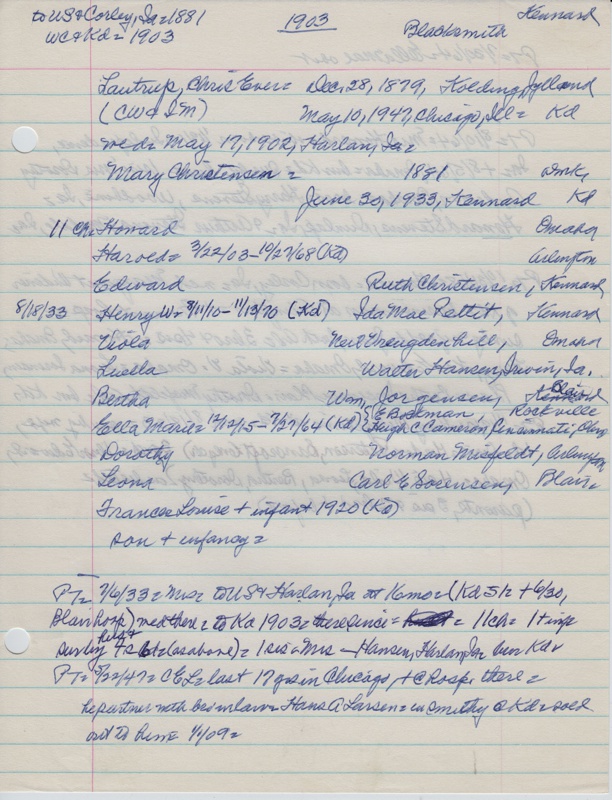 to US & Corley, Ia = 1881 1903 Blacksmith Kennard
WC & Kd = 1903
Lautrup, Chris Ever = Dec. 28, 1879, Kolding, Jylland
(CW & IM) May 10, 1947, Chicago, Ill = Kd
med = May 17, 1902, Harlan, Ia =
Mary Christensen = 1881 Dmk,
June 30, 1933, Kennard Kd
11 ch = Howard Omaha
Harold = 3/22/03 - 10/27/68 (Kd) Arlington
Edward Ruth Christensen, Kennard
8/18/33 Henry W = 3/11/10 - 11/13/70 (Kd) Ida Mae Pettit, Kennard
Viola Neil Vreugdenhill, Omaha
Luella Walter Hansen, Irwin, Ia.
Bertha Wm. Jorgensen, Blair
Ella Marie = 12/12/15 - 7/27/64 (Kd) { E Bozeman, Rockville
Hugh C Cameron, Cincinnati, Ohio
Dorothy Norman Misfeldt, Arlington
Leona Carl E Sorensen, Blair =
Frances Louise + infant 1920 (Kd)
son + infancy =
PT = 7/6/33 = Mrs = to US & Harlan, Ia at 16 mo = (Kd 5 Yr + 6/30,
Blair hosp) med there = to Kd 1903 = there since = 11 ch = 1 + inf
surv by husb + 5 6 d = (as above) = 1 sis = Mrs - Hansen, Harlan, Ia = bur Kd =
PT = 5/22/47 = C E L = last 17 yrs in Chicago, + C Rosp there =
he partner with bro in law = Hans A Larsen = in smithy @ Kd = sold
out to him = 1/1/09 =